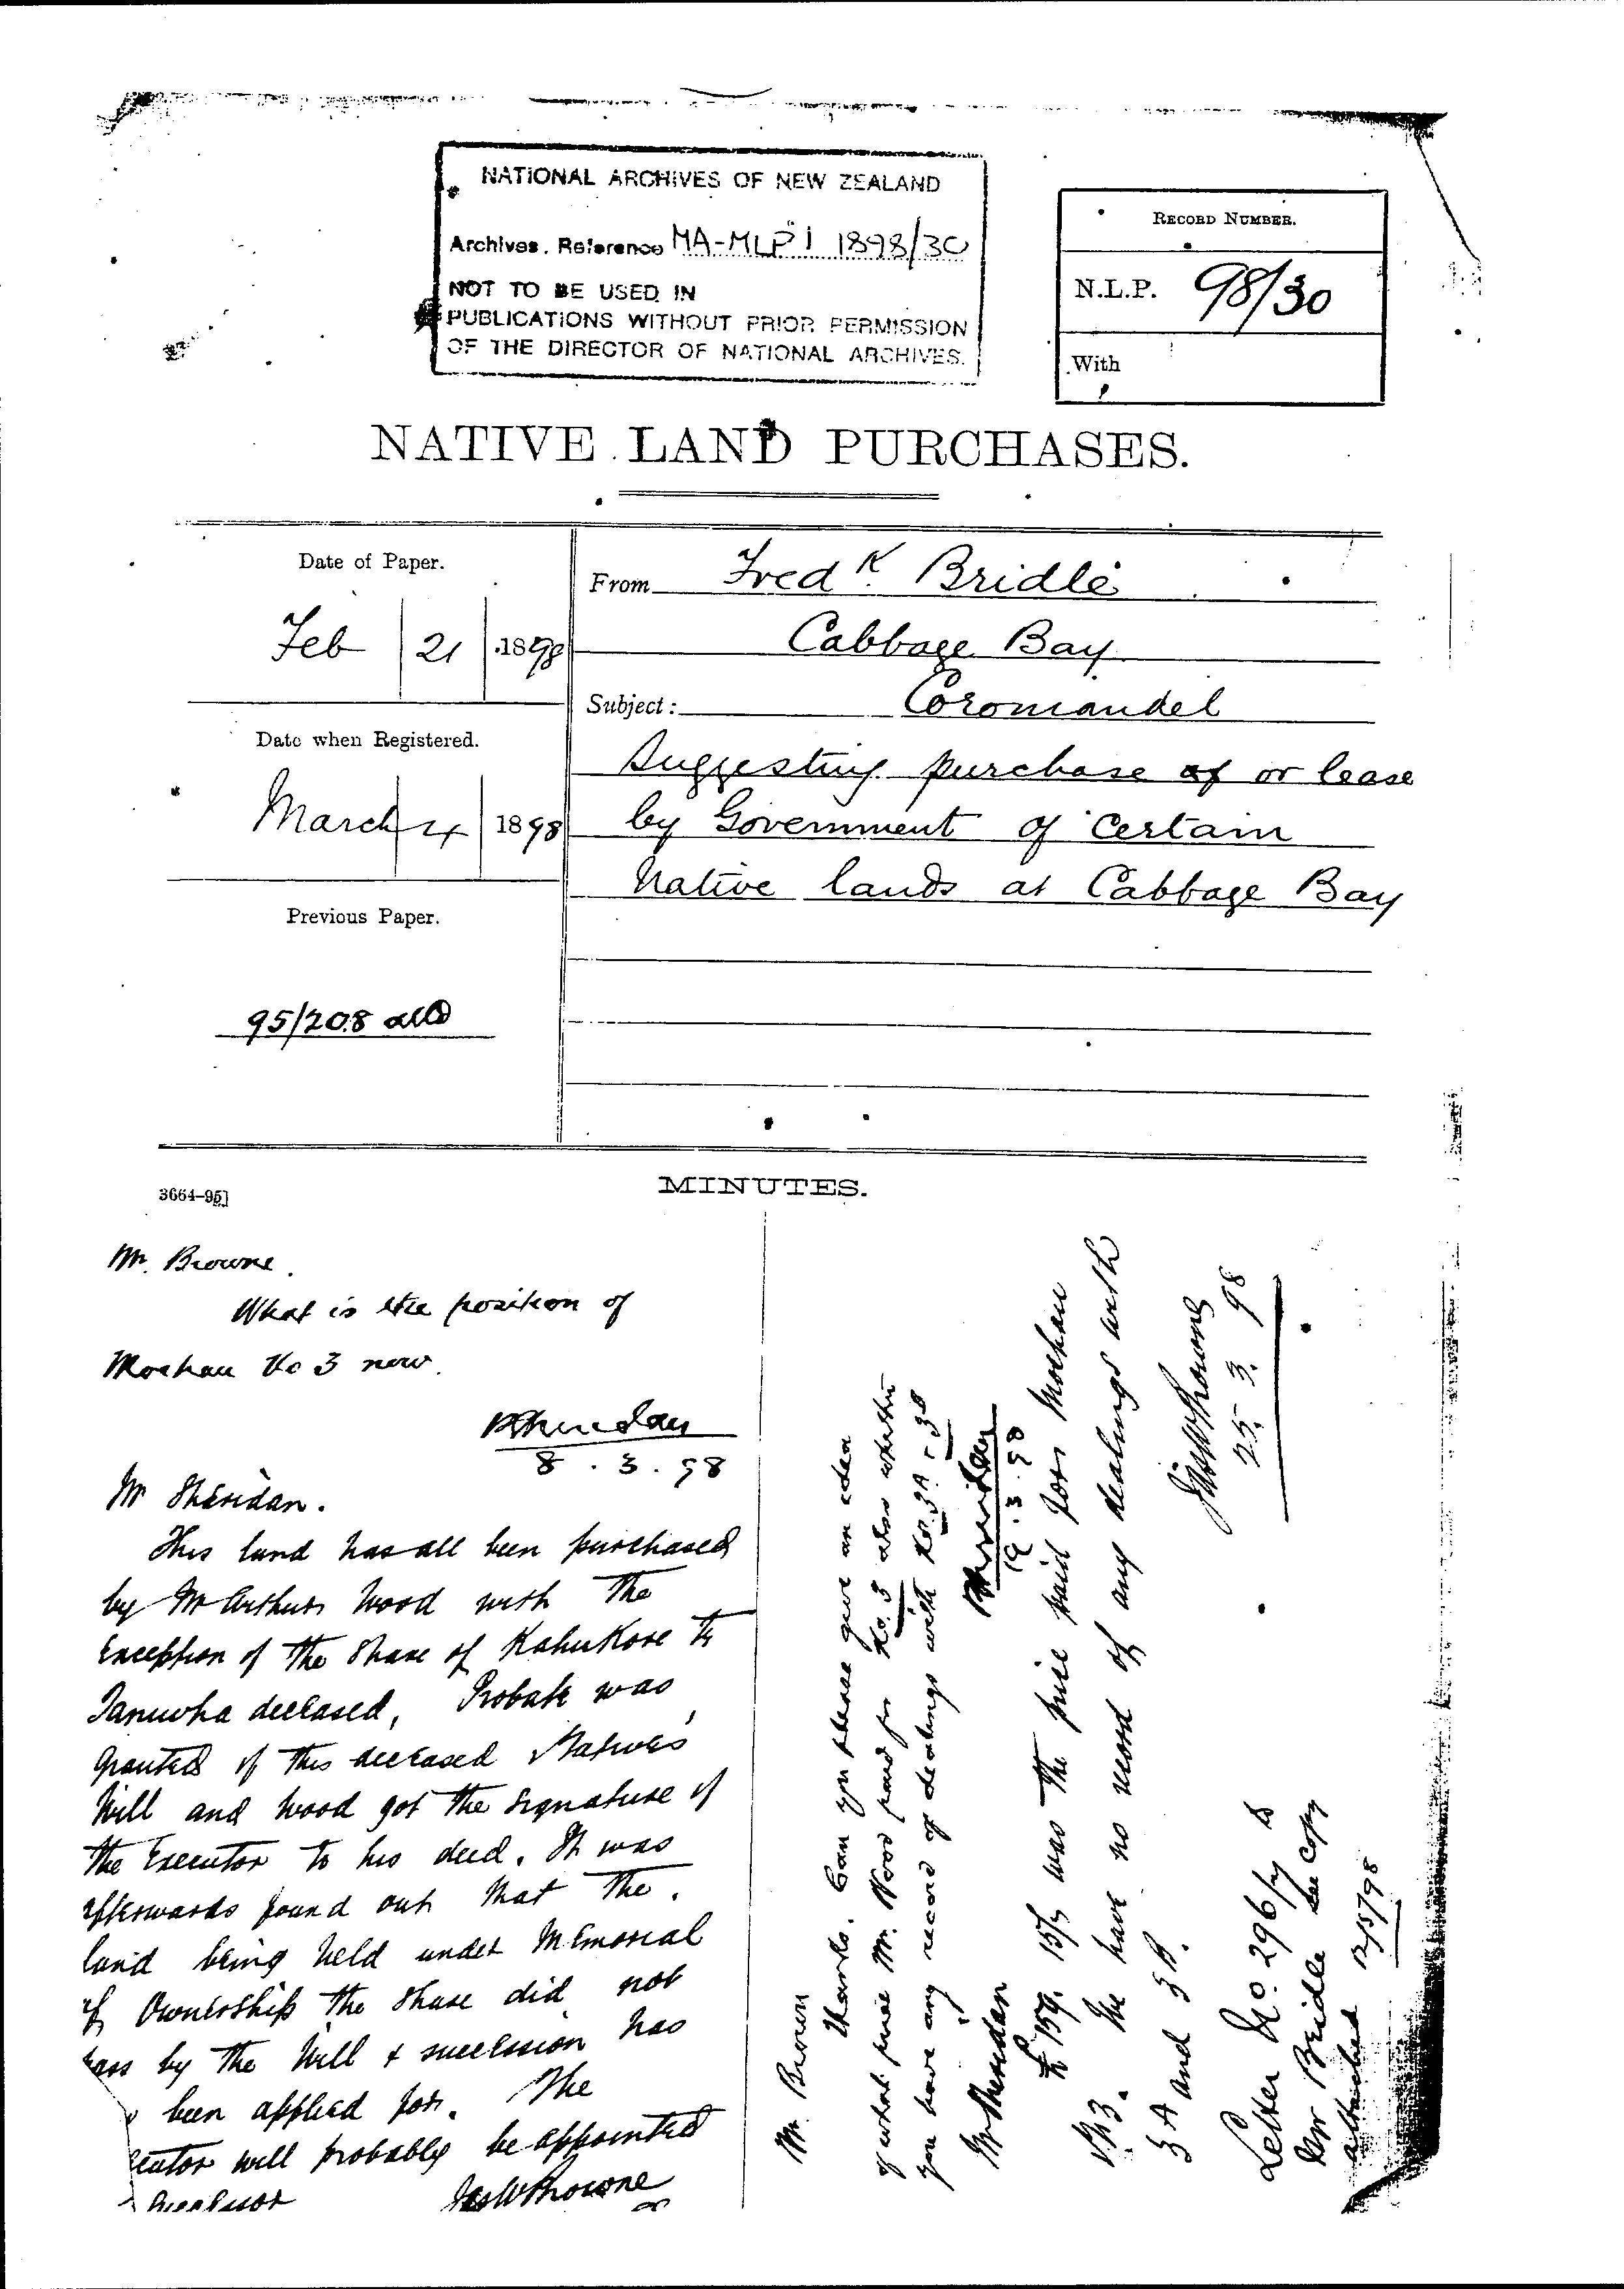 NATIONAL ARCHIVES OF NEW ZEALAND
Archives. Reference MA-MLP 1 1898/30
NOT TO BE USED IN
PUBLICATIONS WITHOUT PRIOR PERMISSION
OF THE DIRECTOR OF NATIONAL ARCHIVES.
RECORD NUMBER.
N.L.P. 98/30
With
NATIVE LAND PURCHASES.
Date of Paper.
Feb 21 1898
Date when Registered.
March 4 1898
Previous Paper.
95/208
From Fredk. Bridle
Cabbage Bay
Subject: Coromandel
Suggesting purchase of or lease
by Government of certain
Native lands at Cabbage Bay
3664-95]
MINUTES.
Mr. Browne.
What is the position of
Moehau No 3 now.
PSheridan
8.3.98
Mr Sheridan.
This land has all been purchased
by Mr Arthur Wood with the
exception of the share of Kahukore Te
Taniwha deceased, Probate was
granted of this deceased Natives'
Will and Wood got the signature of
the Executor to his deed. It was
afterwards found out that the
land being held under Memorial
of Ownership the share did not
pass by the Will & succession has
been applied for. The
cutor will probably be appointed
Successor
JasWBrowne
Mr. Brown
Thanks. Can you please give an idea
of what price Mr. Wood paid for No. 3 also whether
you have any record of dealings with No. 3A & 3B
PSheridan
19.3.98
Mr Sheridan
£159. 15/3 was the price paid for Moehau
No 3. We have no record of any dealings with
3A and 3B.
JasWBrowne
25.3.98
Letter No. 296/ to
Mr Bridle see copy
attached 12/5/98